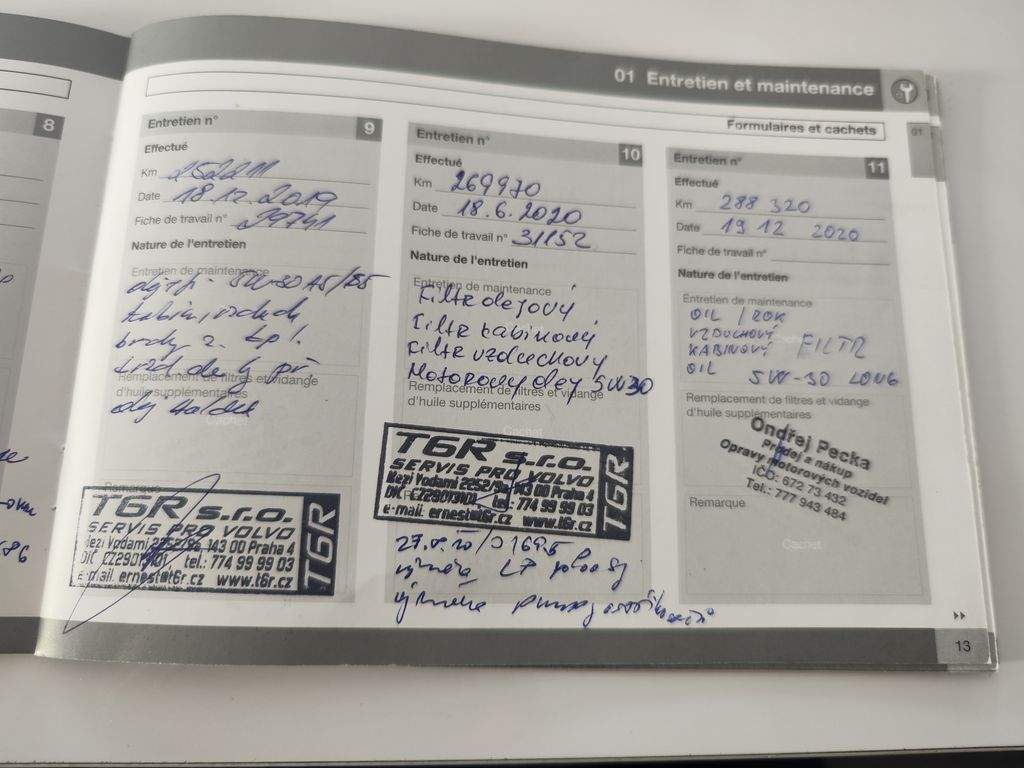 01 Entretien et maintenance
Formulaires et cachets
01
8
Entretien n° 9
Effectué
Km 252211
Date 18.12.2019
Fiche de travail n° 29741
Nature de l'entretien
Entretien de maintenance
5W-30 A5/B5
Remplacement de filtres et vidange
d'huile supplémentaires
olej
Cachet
Remarque
T6R s.r.o.
SERVIS PRO VOLVO
Mezi Vodami 2252/9a, 143 00 Praha 4
DIČ tel.: 774 99 99 03
e-mail: ernest@t6r.cz www.t6r.cz
T6R
Entretien n° 10
Effectué
Km 269970
Date 18.6.2020
Fiche de travail n° 31152
Nature de l'entretien
Entretien de maintenance
Filtr olejový
Filtr kabinový
Filtr vzduchový
Motorový olej 5W30
Remplacement de filtres et vidange
d'huile supplémentaires
Cachet
T6R s.r.o.
SERVIS PRO VOLVO
Mezi Vodami 2252/9a, 143 00 Praha 4
DIČ tel.: 774 99 99 03
e-mail: ernest@t6r.cz www.t6r.cz
T6R
výměna
výměna
Entretien n° 11
Effectué
Km 288 320
Date 19 12 2020
Fiche de travail n°
Nature de l'entretien
Entretien de maintenance
OIL / ROK
VZDUCHOVÝ
KABINOVÝ FILTR
OIL 5W-30 LONG
Remplacement de filtres et vidange
d'huile supplémentaires
Ondřej Pecka
Prodej a nákup
Opravy motorových vozidel
IČO: 672 73 432
Tel.: 777 943 484
Remarque
Cachet
13